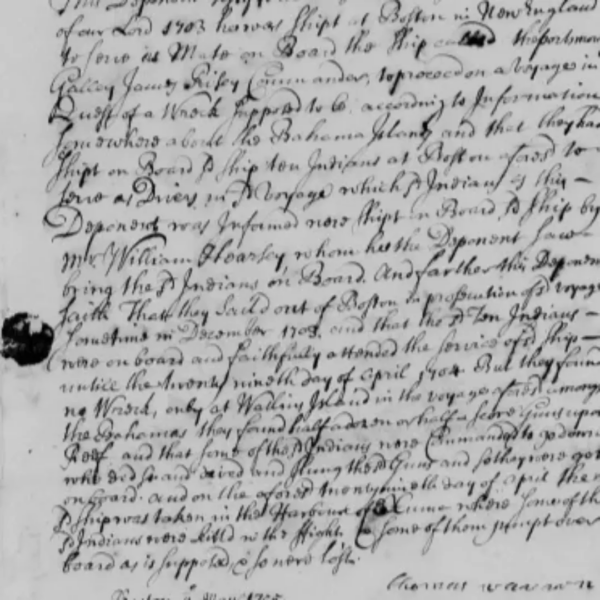 This Deponent
of our Lord 1703 he was Shipt at Boston in New England
to serve as Mate on Board the Ship called the portsmou
Galley James Risby Commander, to proceed on a Voyage in
Quest of a Wreck Supposed to be according to Information
somewhere about the Bahama Islands and that they had
Shipt on Board sd ship ten Indians at Boston aforesd to
serve as Divers in sd Voyage which sd Indians as this
Deponent was Informed were shipt on Board sd ship by
Mr. William Clearsby whom hee the Deponent saw
bring the sd Indians on Board. And farther this Deponent
saith That they Sail'd out of Boston in prosecution of sd voyage
sometime in December 1703. and that the sd Ten Indians
were on board and faithfully attended the service of sd ship
untill the twenty nineth day of April 1704. But they found
no Wreck, only at Watling Island in the voyage aforesd amongst
the Bahamas they found half a dozen or half a score Guns upon
Reef and that some of the sd Indians were Commanded to go down
who did so and dived and slung the sd Guns and so they were got
on board. and on the aforesd twenty nineth day of April the
sd ship was taken in the Harbour of Exuma where some of the
sd Indians were kill'd in the flight & some of them jumpt over
board as is supposed, & so were lost.
Thomas
Boston May 1705